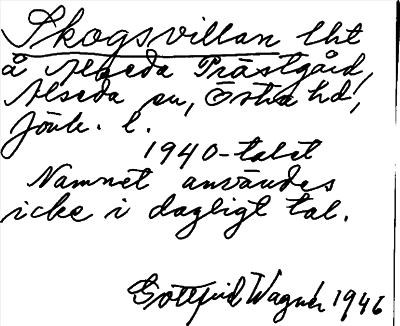 Skogsvillan lht
å Alseda Prästgård,
Alseda sn, Östra hd,
Jönk. l.
1940-talet
Namnet användes
icke i dagligt tal.
Gottfrid Wagnér 1946